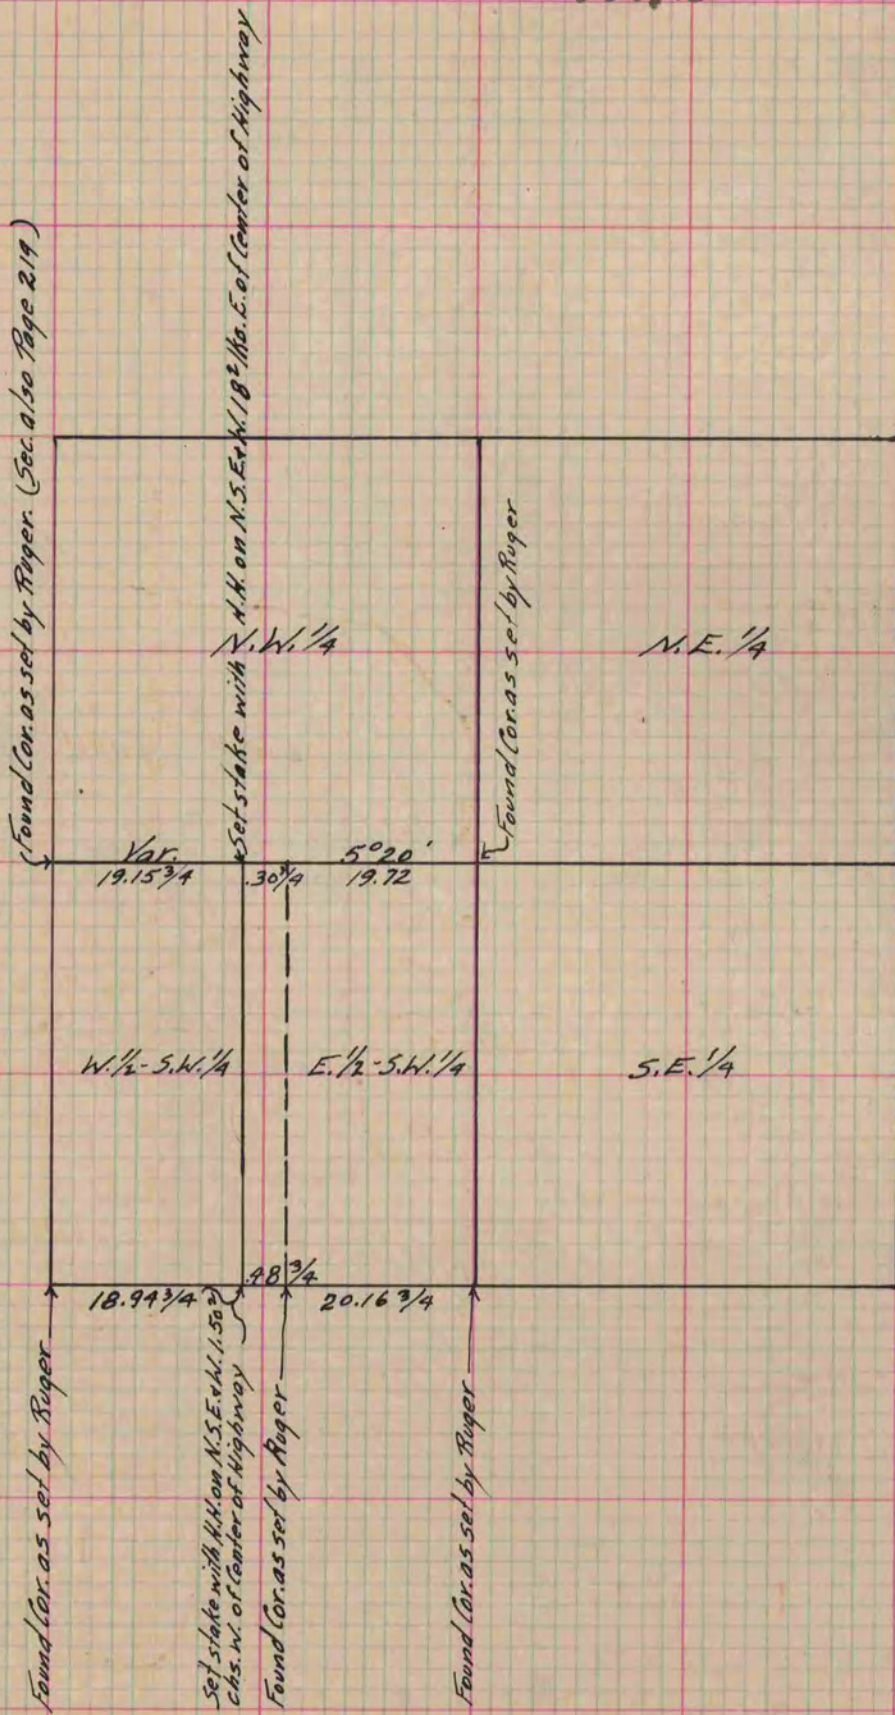 Found Cor. as set by Ruger. (Sec. also Page 219)
Set stake with H.H. on N.S.E.&W. 18² lks. E. of Center of Highway
N.W. 1/4
Found Cor. as set by Ruger
N.E. 1/4
Var. 5° 20'
19.15 3/4 .30 3/4 19.72
W. 1/2 - S.W. 1/4
E. 1/2 - S.W. 1/4
S.E. 1/4
.48 3/4
18.94 3/4 20.16 3/4
Found Cor. as set by Ruger
Set stake with H.H. on N.S.E.&W. 1.50²
chs. W. of Center of Highway
Found Cor. as set by Ruger
Found Cor. as set by Ruger